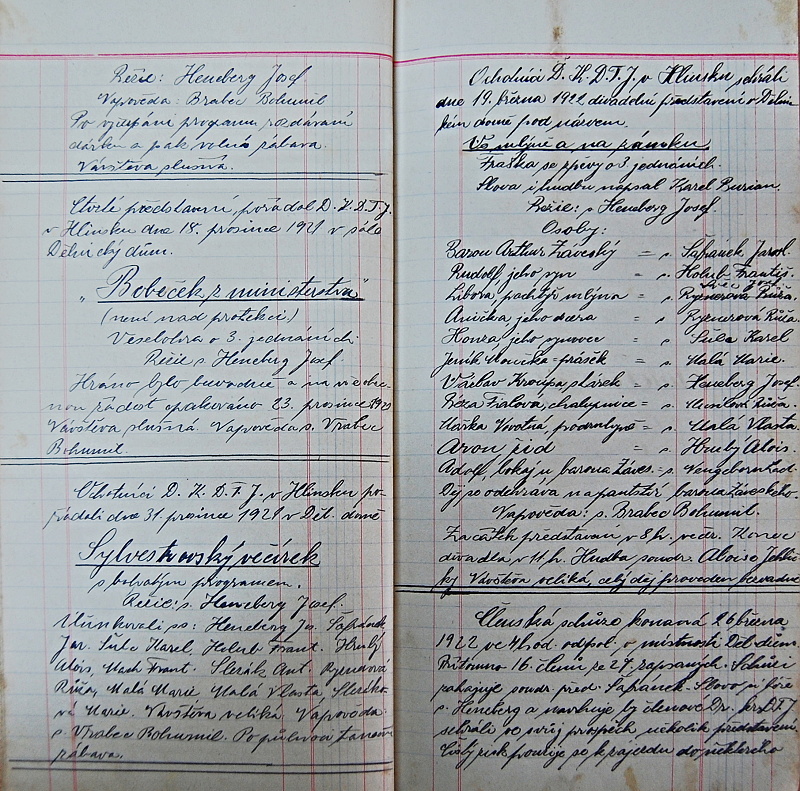 Režie: Heneberg Josef
Vapověda: Brabec Bohumil
Po vyčerpání programu rozdávání
dárků a pak volná zábava.
Návštěva slušná.
Čtvrté představení, pořádal D. K. D. T. J.
v Hlinsku dne 18. prosince 1921 v sále
Dělnický dům.
„Bobeček z ministerstva"
(není nad protekci)
Veselohra o 3. jednáních.
Režie s. Heneberg Josef.
Hráno bylo bezvadně a na všeobec-
nou žádost opakováno 23. prosince 1921
Návštěva slušná. Vapověda s. Vrabec
Bohumil.
Ochotníci D. K. D. T. J. v Hlinsku po-
řádali dne 31. prosince 1921 v Děl. domě
Sylvestrovský večírek
s bohatým programem.
Režie: s. Heneberg Josef.
Účinkovali ss: Heneberg Jos. Šafránek
Jar. Šula Karel, Holub Frant. Hrubý
Alois, Mach Frant. Slezák Ant. Ryznerová
Růža, Malá Marie Malá Vlasta Slezáko-
vá Marie. Návštěva veliká Vapověda
s. Vrabec Bohumil. Po půlnoci taneční
zábava.
Ochotníci D. K. D. T. J. v Hlinsku sehráli
dne 19. března 1922 divadelní představení v Dělni-
kém domě pod názvem.
Ve mlýně a na zámku.
Fraška se zpěvy o 3 jednáních.
Slova i hudbu napsal Karel Burian.
Režie: s Heneberg Josef.
Osoby:
Baron Arthur Záveský = s. Šafránek Jarosl.
Rudolf, jeho syn = s. Holub Františ.
Libora, pachtýř mlýna = s. Ryznerová Růža.
Anička jeho dcera = s. Ryznerová Růža.
Honza, jeho synovec = s. Šula Karel
Jeník = s. Malá Marie.
Václav Kroupa, stárek = s. Heneberg Josef
Réza Fialová, chalupnice = s. Růža.
Marka = s. Malá Vlasta.
Aron žid = s. Hrubý Alois.
Adolf, lokaj u barona Záves. = s.
Děj se odehrává na panství barona Záveského.
Vapověda: s. Brabec Bohumil.
Začátek představení v 8 h. večer. Konec
divadla v 11 h. Hudba soudr. Aloise
Návštěva veliká, celý děj proveden bezvadně
Členská schůze konaná 26 března
1922 ve 4 hod. odpol. v místnosti Děl. dům.
Přítomno 16 členů ze 27 zapsaných. Schůzi
zahajuje soudr. před. Šafránek. Slovo si bére
s. Heneberg a navrhuje by členové Dr. D.T.J.
sehráli ve svůj prospěch několik představení
Čistý zisk použije se k zájezdu do některého